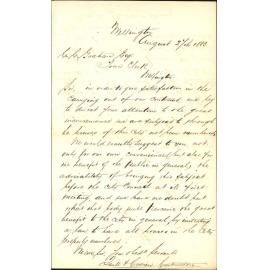 Wellington
August 27th 1880
Graham Esq
Town Clerk
Wellington
Sir, in order to give satisfaction in the
carrying out of our contract we beg
to direct your attention to the great
inconvenience we are subject to through
the houses of this city not being numbered.
We would humbly suggest to you not
only for our own convenience but also for
the benefit of the public in general the
advisability of bringing this subject
before the City Council at its first
meeting, and we have no doubt but
what that body will the great
benefit to the city in general by
a law to have all houses in the City
properly numbered.
We are Sir Your Obdt Servants